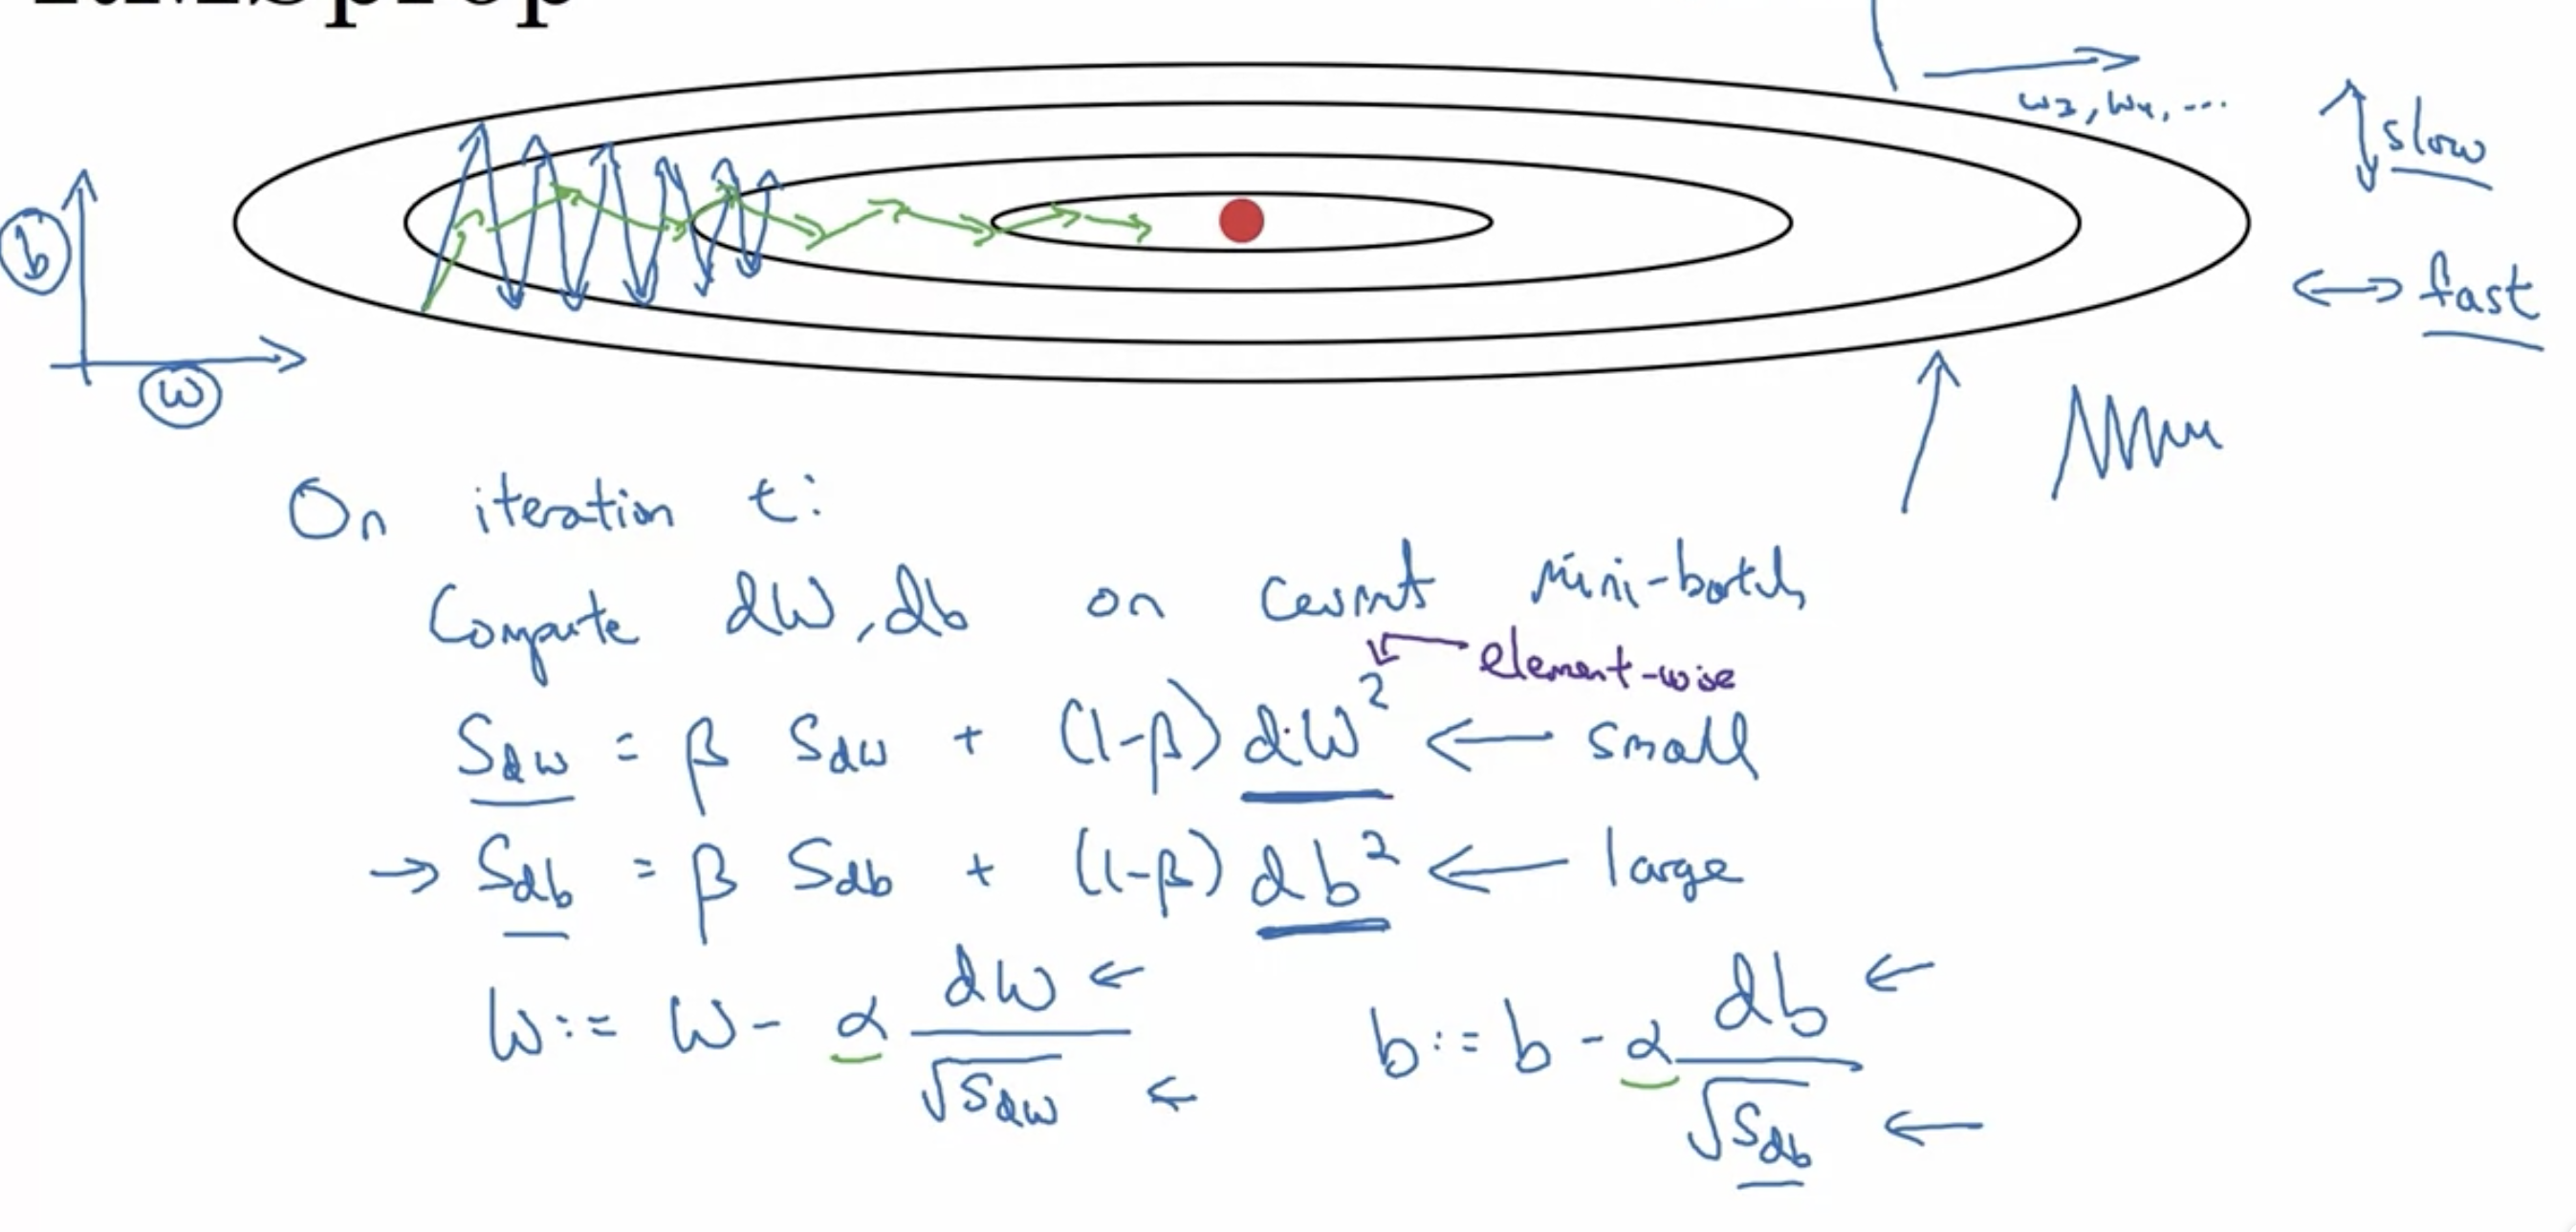 RMSprop
w3, w4, ...
slow
b
fast
w
On iteration t:
Compute dW, db on current mini-batch
element-wise
Sdw = β Sdw + (1-β) dW² ← small
→ Sdb = β Sdb + (1-β) db² ← large
W := W - α dw/√Sdw ←
b := b - α db/√Sdb ←